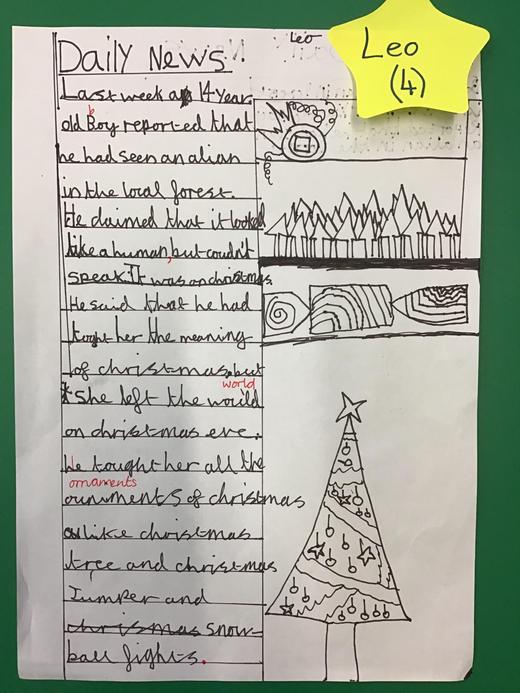 Leo
Leo
(4)
Daily News
Last week a 14 Year
b
old Boy reported that
he had seen an alian
in the local forest.
He claimed that it looked
like a human, but couldn't
speak It was on christmas.
He said that he had
tought her the meaning
of christmas, but
world
she left the would
on christmas eve.
He tought her all the
ornaments
ouniments of christmas
like christmas
tree and christmas
Jumper and
chrismas snow-
ball fights.